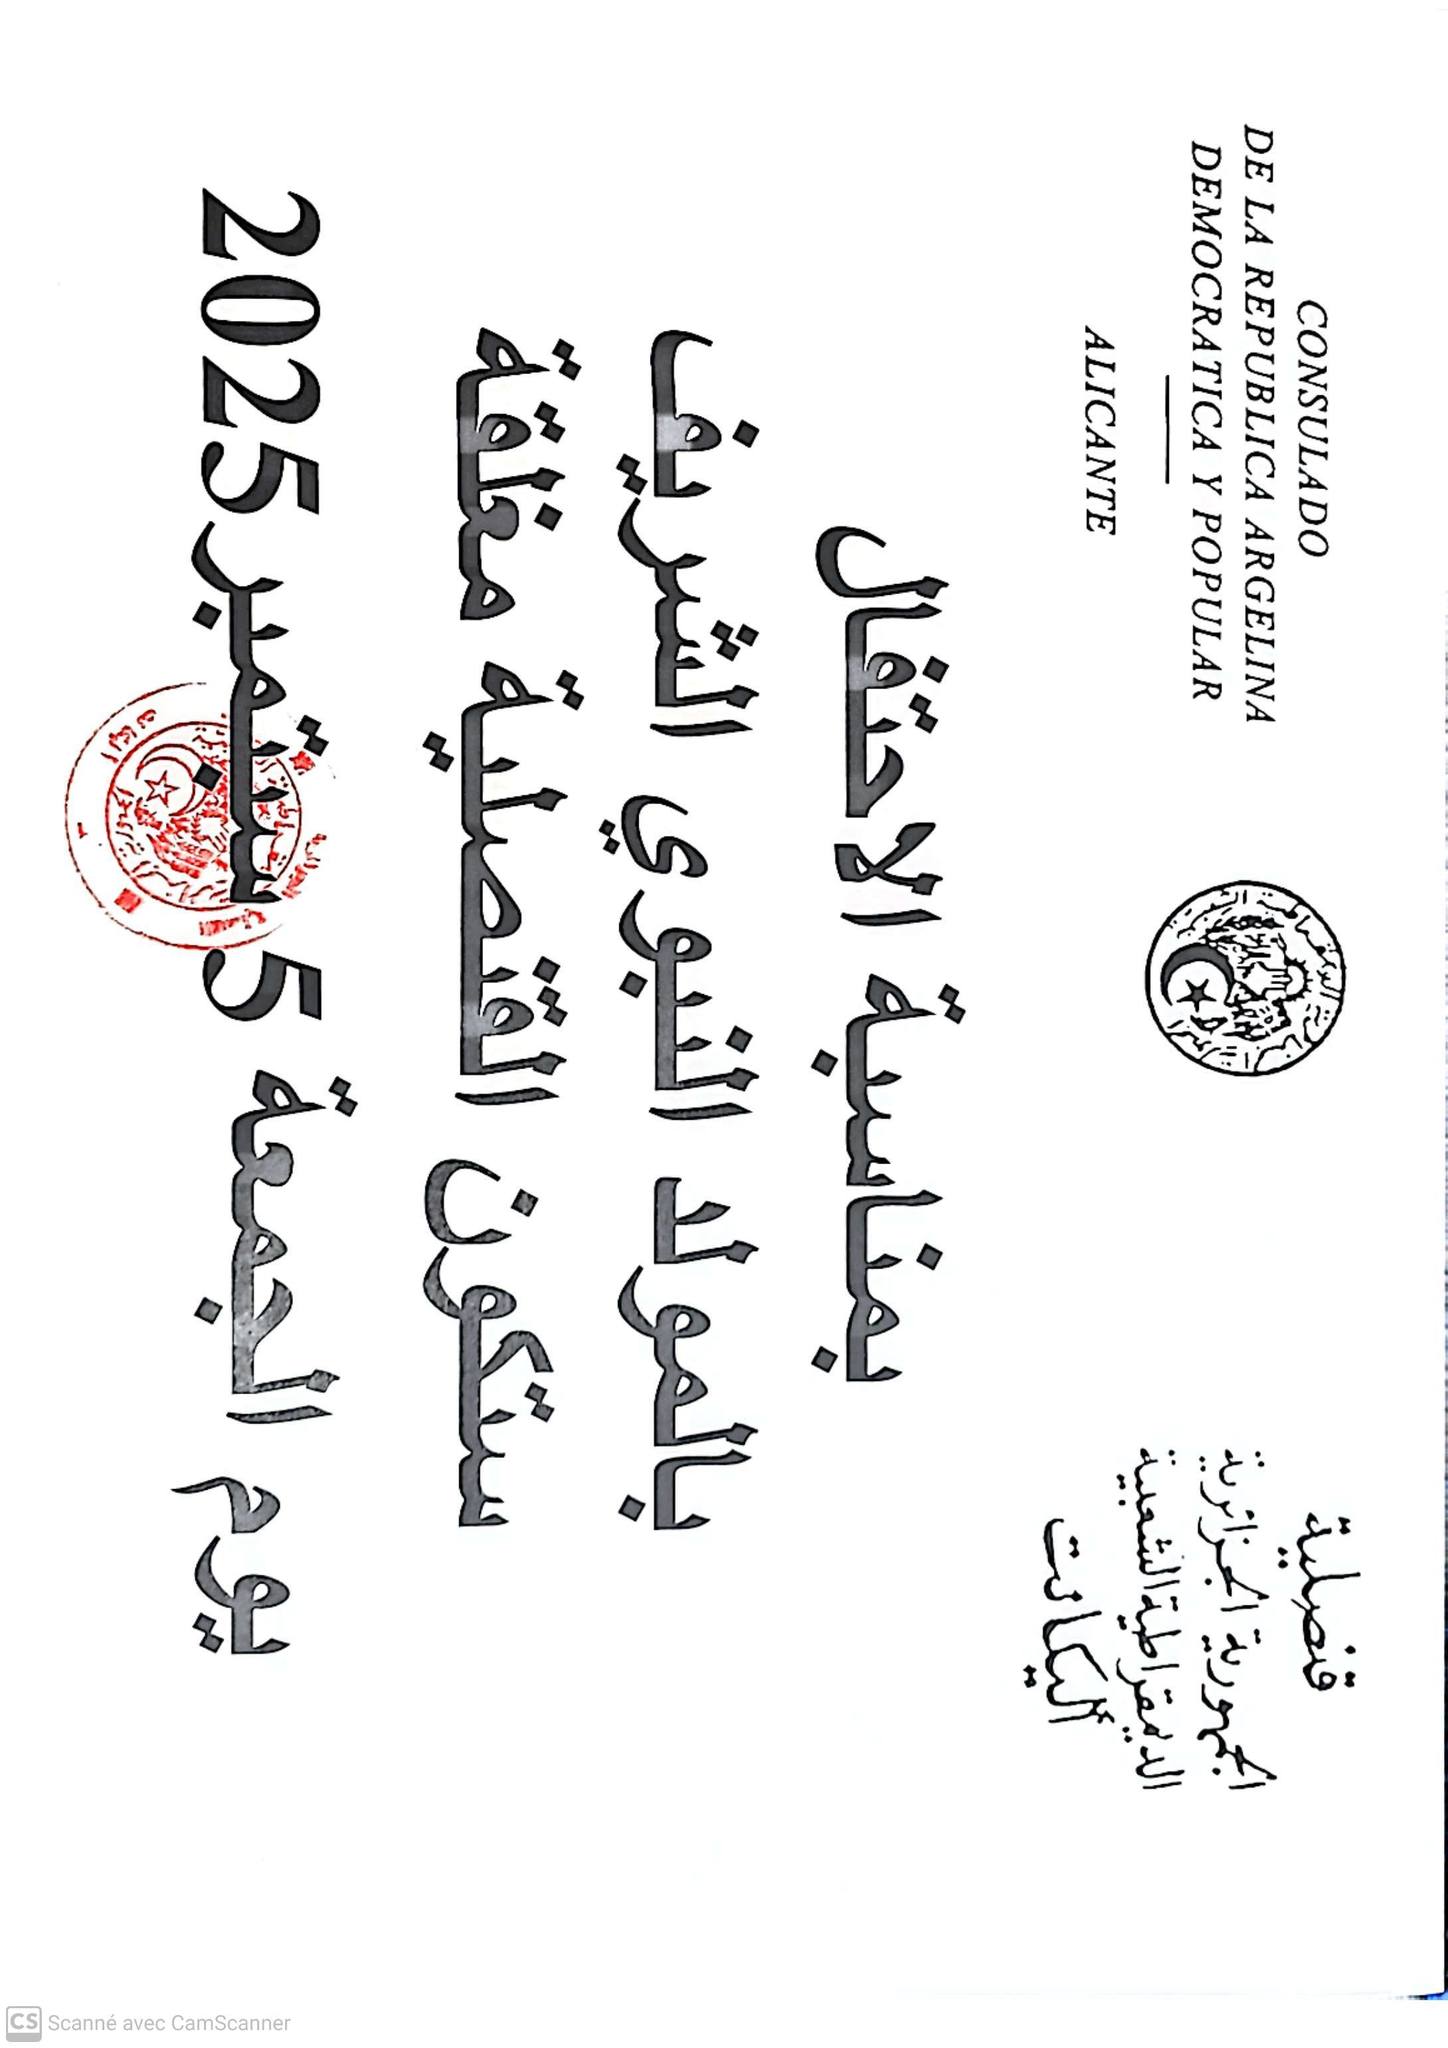 CONSULADO
DE LA REPUBLICA ARGELINA
DEMOCRATICA Y POPULAR
ALICANTE
قنصلية
الجمهورية الجزائرية
الديمقراطية الشعبية
أليكانت
بمناسبة الاحتفال
بالمولد النبوي الشريف
ستكون القنصلية مغلقة
يوم الجمعة 5 سبتمبر 2025
CS Scanné avec CamScanner